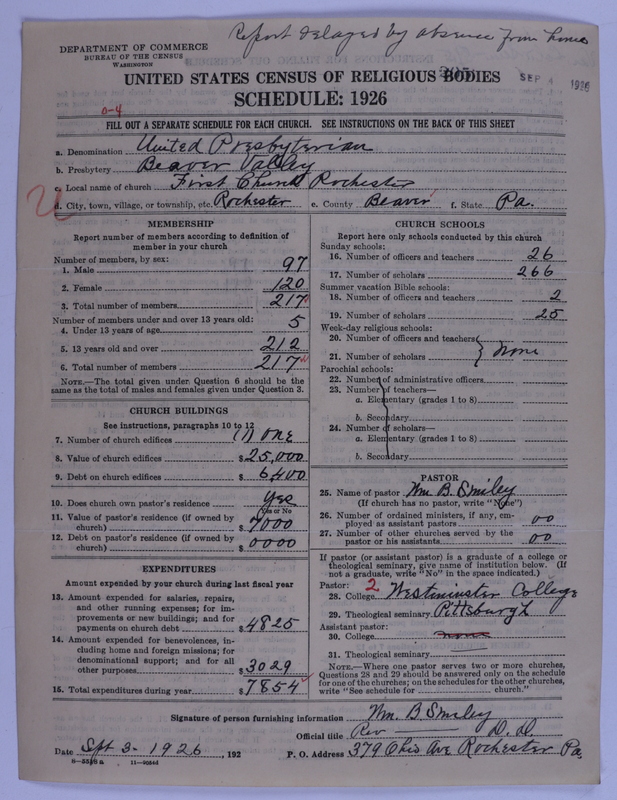 Report delayed by absence from home
DEPARTMENT OF COMMERCE
BUREAU OF THE CENSUS
WASHINGTON
UNITED STATES CENSUS OF RELIGIOUS BODIES
SEP 4 1926
SCHEDULE: 1926
0-4
FILL OUT A SEPARATE SCHEDULE FOR EACH CHURCH. SEE INSTRUCTIONS ON THE BACK OF THIS SHEET
a. Denomination United Presbyterian
b. Presbytery Beaver Valley
c. Local name of church First Church Rochester
d. City, town, village, or township, etc. Rochester e. County Beaver f. State Pa.
MEMBERSHIP
Report number of members according to definition of
member in your church
Number of members, by sex:
1. Male 97
2. Female 120
3. Total number of members 217
Number of members under and over 13 years old:
4. Under 13 years of age 5
5. 13 years old and over 212
6. Total number of members 217
NOTE.—The total given under Question 6 should be the
same as the total of males and females given under Question 3.
CHURCH BUILDINGS
See instructions, paragraphs 10 to 12
7. Number of church edifices (1) one
8. Value of church edifices $25,000
9. Debt on church edifices $6,400
10. Does church own pastor's residence yes
Yes or No
11. Value of pastor's residence (if owned by
church) $7000
12. Debt on pastor's residence (if owned by
church) $0000
EXPENDITURES
Amount expended by your church during last fiscal year
13. Amount expended for salaries, repairs,
and other running expenses; for im-
provements or new buildings; and for
payments on church debt $4825
14. Amount expended for benevolences, in-
cluding home and foreign missions; for
denominational support; and for all
other purposes $3029
15. Total expenditures during year $7854
CHURCH SCHOOLS
Report here only schools conducted by this church
Sunday schools:
16. Number of officers and teachers 26
17. Number of scholars 266
Summer vacation Bible schools:
18. Number of officers and teachers 2
19. Number of scholars 25
Week-day religious schools:
20. Number of officers and teachers
21. Number of scholars none
Parochial schools:
22. Number of administrative officers
23. Number of teachers—
a. Elementary (grades 1 to 8)
b. Secondary
24. Number of scholars—
a. Elementary (grades 1 to 8)
b. Secondary
PASTOR
25. Name of pastor Wm B. Smiley
(If church has no pastor, write "None")
26. Number of ordained ministers, if any, em-
ployed as assistant pastors 00
27. Number of other churches served by the
pastor or his assistants 00
If pastor (or assistant pastor) is a graduate of a college or
theological seminary, give name of institution below. (If
not a graduate, write "No" in the space indicated.)
Pastor:
28. College 2 Westminster College
29. Theological seminary Pittsburgh
Assistant pastor:
30. College none
31. Theological seminary
NOTE.—Where one pastor serves two or more churches,
Questions 28 and 29 should be answered only on the schedule
for one of the churches; on the schedules for the other churches,
write "See schedule for church."
Signature of person furnishing information Wm. B. Smiley
Official title Rev D. D.
Date Spt 3- 1926, 192 P. O. Address 379 Ohio Ave Rochester Pa.